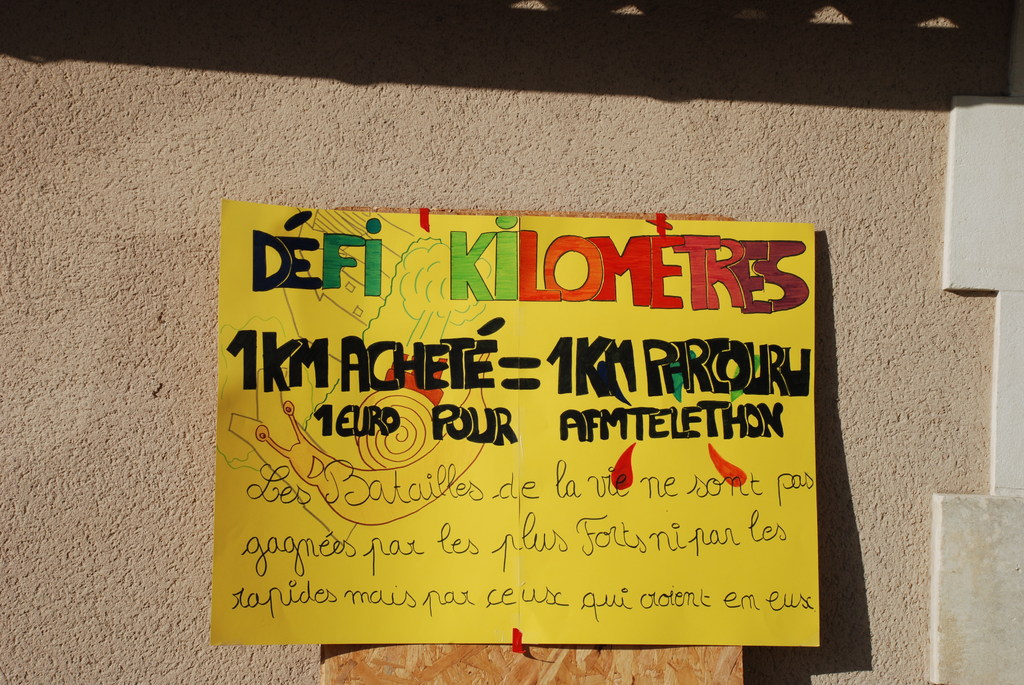 DÉFi KiLOMÈTRES
1KM ACHETÉ = 1KM PARCOURU
1EURO POUR AFMTELETHON
Les Batailles de la vie ne sont pas
gagnées par les plus Forts ni par les
rapides mais par ceux qui croient en eux